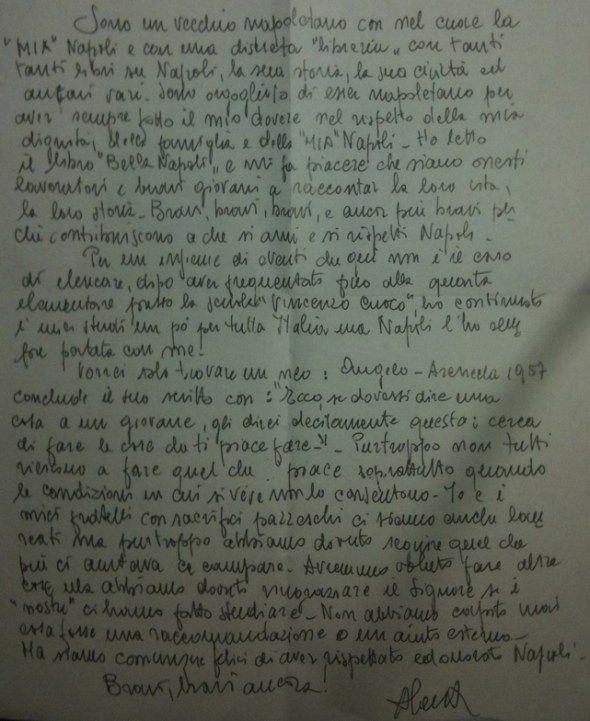 Sono un vecchio napoletano con nel cuore la
"MIA" Napoli e con una discreta "libreria" con tanti
tanti libri su Napoli, la sua storia, la sua civiltà ed
autori vari. Sono orgoglioso di esser napoletano per
aver sempre fatto il mio dovere nel rispetto della mia
dignità, della famiglia e della "MIA" Napoli - Ho letto
il libro "Bella Napoli" e mi fa piacere che siano onesti
lavoratori e bravi giovani a raccontar la loro vita,
la loro storia - Bravi, bravi, bravi, e ancor più bravi per
chè contribuiscono a che si ami e si rispetti Napoli -
Per un insieme di eventi che qui non è il caso
di elencare, dopo aver frequentato fino alla quinta
elementare presso la scuola "Vincenzo Cuoco", ho continuato
i miei studi un po' per tutta Italia ma Napoli l'ho sem
pre portata con me.
Vorrei solo trovare un neo: Angelo - Arenella 1957
conclude il suo scritto con: "Ecco, se dovessi dire una
cosa a un giovane, gli direi decisamente questa: cerca
di fare le cose che ti piace fare -" - Purtroppo non tutti
riescono a fare quel che piace soprattutto quando
le condizioni in cui si vive non lo consentono - Io e i
miei fratelli con sacrifici pazzeschi ci siamo anche lau
reati ma purtroppo abbiamo dovuto seguire quel che
più ci aiutava a campare - Avremmo voluto fare altre
cose ma abbiamo dovuto ringraziare il Signore se i
"nostri" ci hanno fatto studiare - Non abbiamo mai
cosa fosse una raccomandazione o un aiuto esterno -
Ma siamo comunque felici di aver rispettato ed onorato Napoli -
Bravi, bravi ancora!